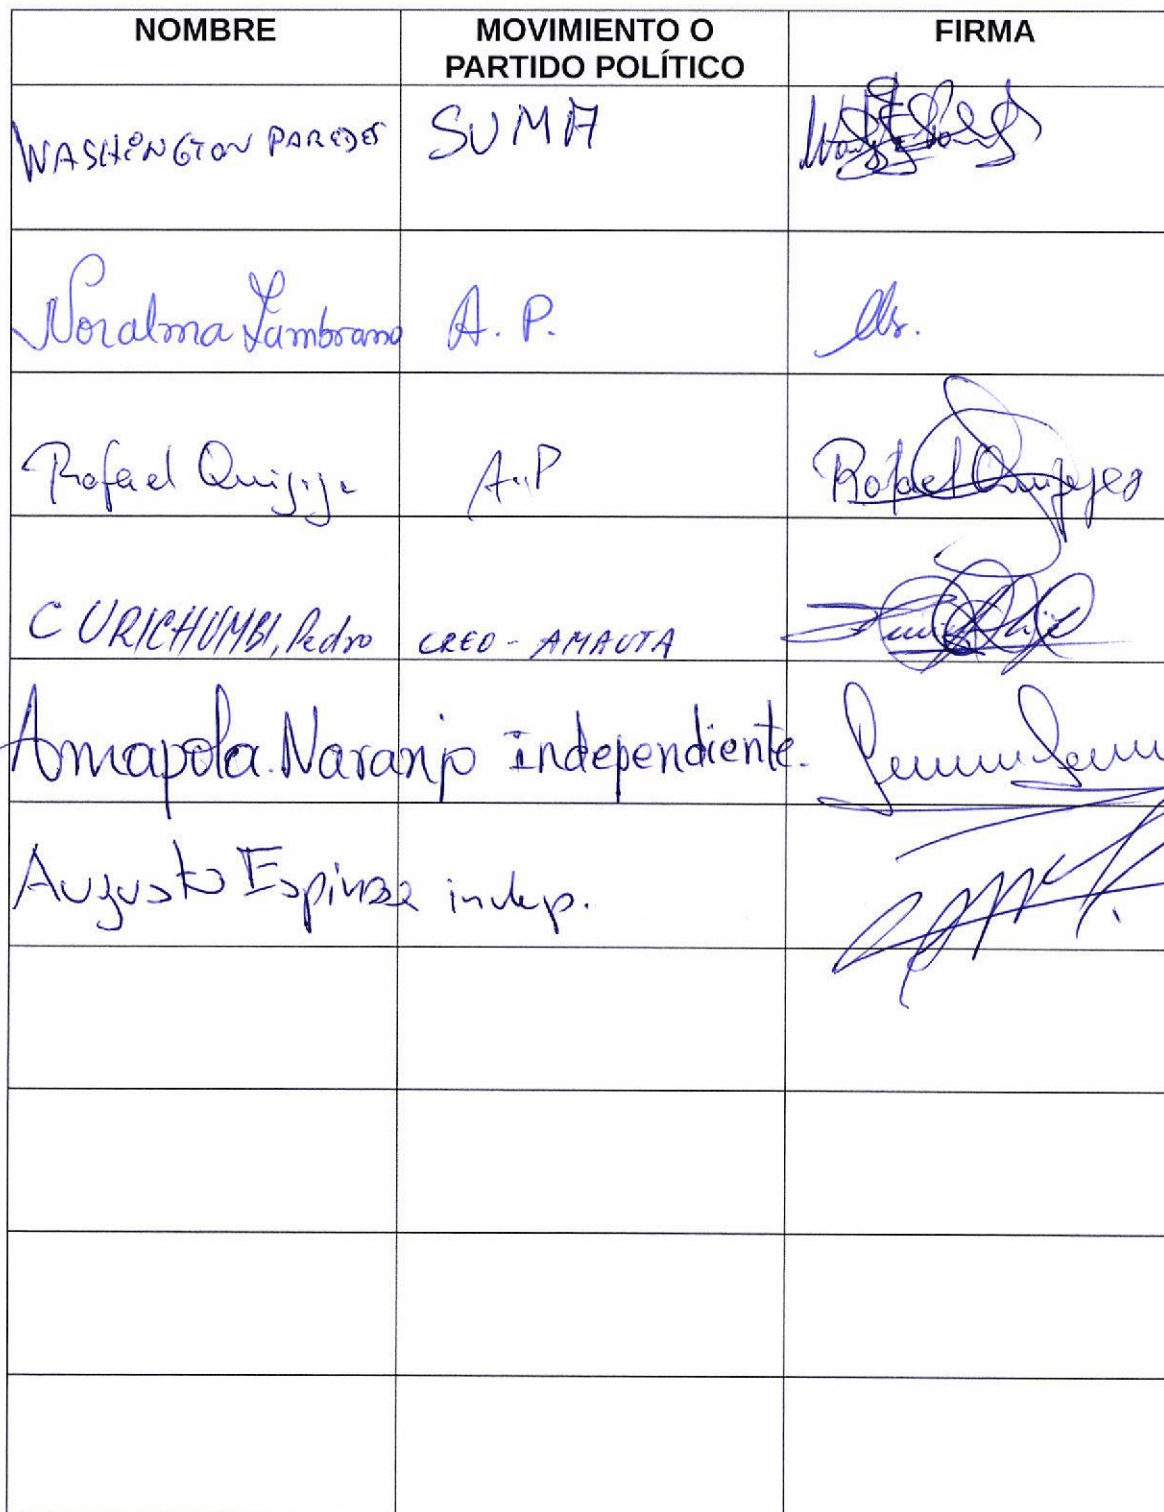 NOMBRE MOVIMIENTO O PARTIDO POLÍTICO FIRMA
WASHINGTON PAREDES SUMA
Noralma Zambrano A. P.
Rafael Quijije A.P Rafael Quijije
CURICHUMBI, Pedro CREO - AMAUTA
Amapola Naranjo independiente.
Augusto Espinosa indep.